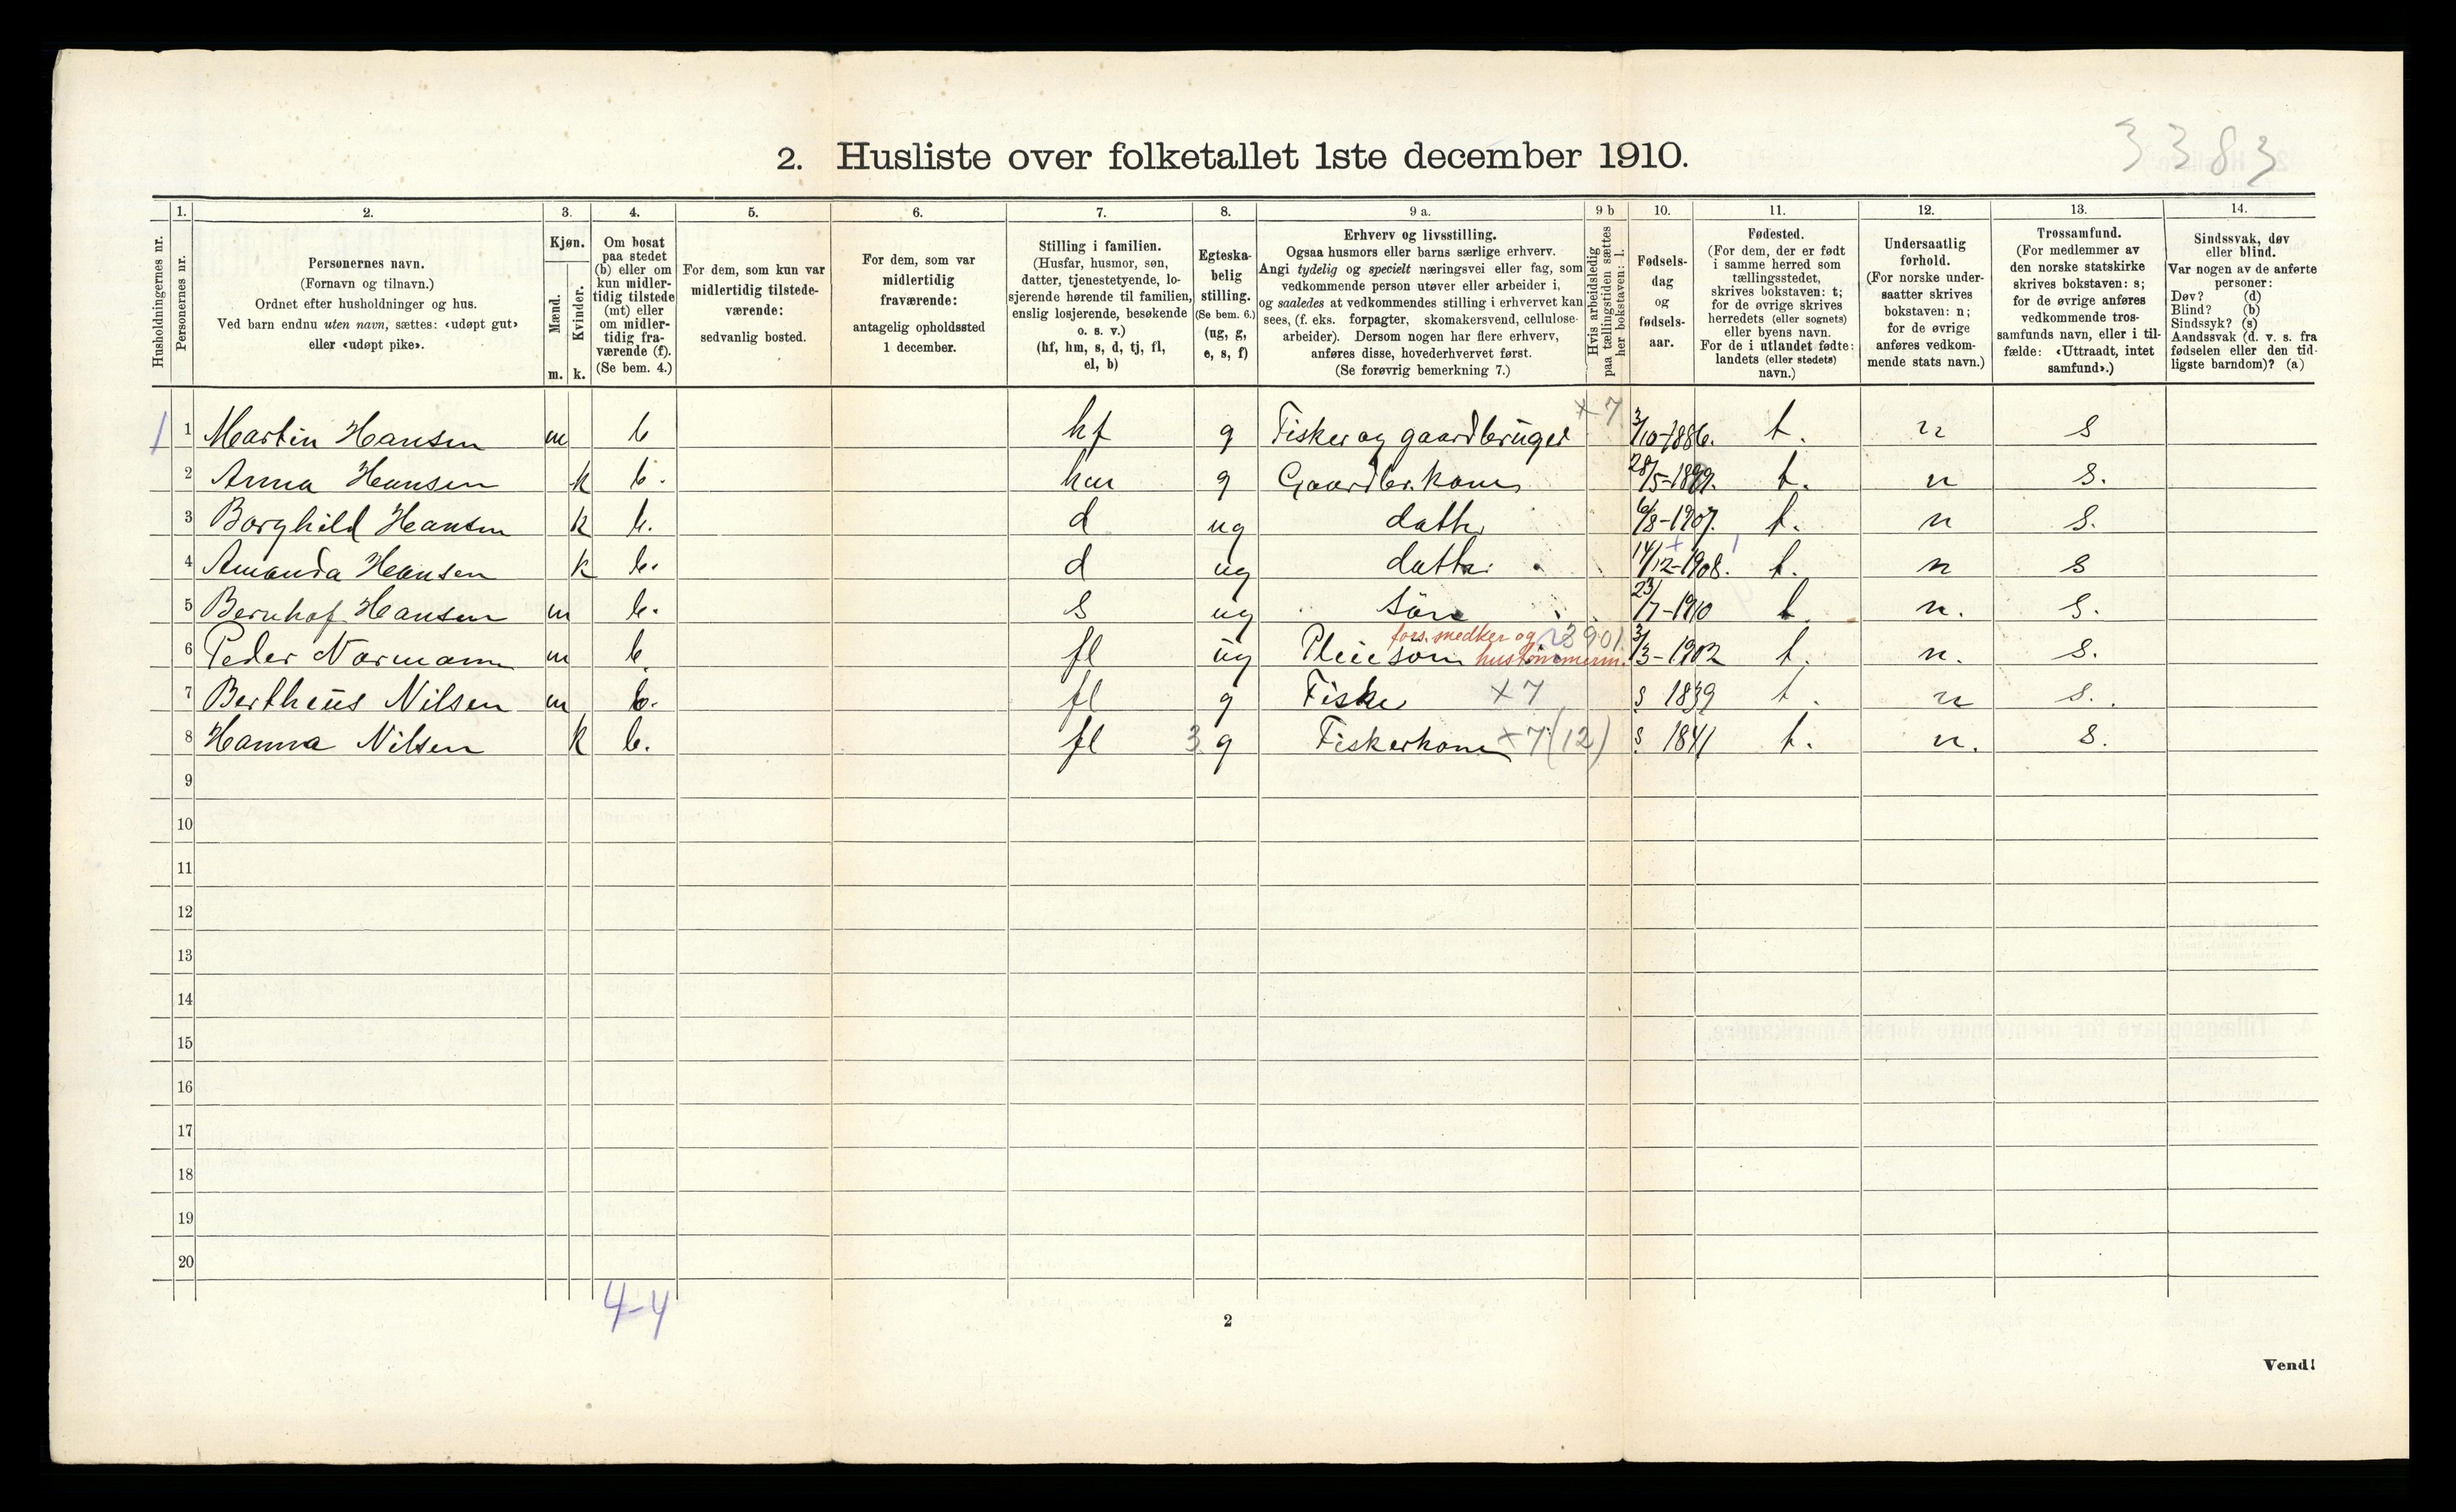 3383
2. Husliste over folketallet 1ste december 1910.
1. 2. 3. 4. 5. 6. 7. 8. 9 a. 9 b 10. 11. 12. 13. 14.
Husholdningernes nr.
Personernes nr.
Personernes navn.
(Fornavn og tilnavn.)
Ordnet efter husholdninger og hus.
Ved barn endnu uten navn, sættes: «udøpt gut»
eller «udøpt pike».
Kjøn.
Mænd.
Kvinder.
m. k.
Om bosat
paa stedet
(b) eller om
kun midler-
tidig tilstede
(mt) eller
om midler-
tidig fra-
værende (f).
(Se bem. 4.)
For dem, som kun var
midlertidig tilstede-
værende:
sedvanlig bosted.
For dem, som var
midlertidig
fraværende:
antagelig opholdssted
1 december.
Stilling i familien.
(Husfar, husmor, søn,
datter, tjenestetyende, lo-
sjerende hørende til familien,
enslig losjerende, besøkende
o. s. v.)
(hf, hm, s, d, tj, fl,
el, b)
Egteska-
belig
stilling.
(Se bem. 6.)
(ug, g,
e, s, f)
Erhverv og livsstilling.
Ogsaa husmors eller barns særlige erhverv.
Angi tydelig og specielt næringsvei eller fag, som
vedkommende person utøver eller arbeider i,
og saaledes at vedkommendes stilling i erhvervet kan
sees, (f. eks. forpagter, skomakersvend, cellulose-
arbeider). Dersom nogen har flere erhverv,
anføres disse, hovederhvervet først.
(Se forøvrig bemerkning 7.)
Hvis arbeidsledig
paa tællingstiden sættes
her bokstaven: l.
Fødsels-
dag
og
fødsels-
aar.
Fødested.
(For dem, der er født
i samme herred som
tællingsstedet,
skrives bokstaven: t;
for de øvrige skrives
herredets (eller sognets)
eller byens navn.
For de i utlandet fødte:
landets (eller stedets)
navn.)
Undersaatlig
forhold.
(For norske under-
saatter skrives
bokstaven: n;
for de øvrige
anføres vedkom-
mende stats navn.)
Trossamfund.
(For medlemmer av
den norske statskirke
skrives bokstaven: s;
for de øvrige anføres
vedkommende tros-
samfunds navn, eller i til-
fælde: «Uttraadt, intet
samfund».)
Sindssvak, døv
eller blind.
Var nogen av de anførte
personer:
Døv? (d)
Blind? (b)
Sindssyk? (s)
Aandssvak (d. v. s. fra
fødselen eller den tid-
ligste barndom)? (a)
1 1 Martin Hansen m b hf g Fisker og gaardbruger x 7 3/10-1886. t. n s
2 Anna Hansen k b. hm g Gaardbr. kone 28/5- t. n s.
3 Borghild Hansen k b. d ug datter 6/8-1907. t. n s.
4 Amanda Hansen k b. d ug datter 14/12-1908. t. n s
5 Bernhof Hansen m b. s ug søn 23/7-1910 t n. s.
fors. medker og
6 Peder Normann m b. fl ug Pleiesøn hustømmerm. 3/3-1902 t. n. s.
7 Bertheus Nilsen m b. fl g Fisker x 7 s 1839 t. n s.
8 Hanna Nilsen k b. fl 3 g Fiskerkone x 7 (12) s 1841 t. n. s.
9
10
11
12
13
14
15
16
17
18
19
20
4-4
2
Vend!